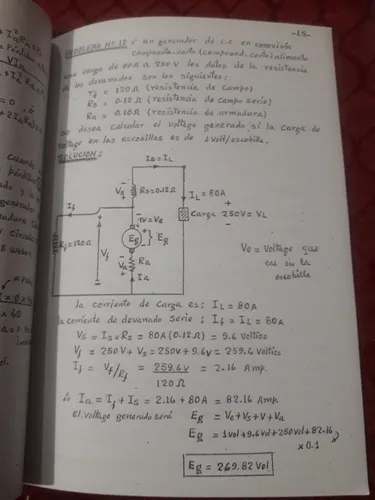 -15-
PROBLEMA Nº 12 : un generador de c.c en conexión
composite-corto (compound-corto) alimenta
una carga de 80A a 250V los datos de la resistencia
de los devanados son los siguientes:
rf = 120Ω (resistencia de campo)
Rs = 0.12Ω (resistencia de campo serie)
Ra = 0.10Ω (resistencia de armadura)
Se desea calcular el voltaje generado si la caida de
voltaje en las escobillas es de 1 Volt/escobilla.
SOLUCION:
Is = IL
Vs
Rs=0.12Ω
IL = 80A
If
Carga 250V = VL
1V = Ve
Eg
Eg
Rf=120Ω
Vf
Va
Ra
Ia
Ve = Voltaje que
cae en la
escobilla
la corriente de Carga es: IL = 80A
la corriente de devanado serie ; Is = IL = 80A
Vs = Is × Rs = 80A (0.12Ω) = 9.6 Voltios
Vf = 250V + Vs = 250V + 9.6V = 259.6 Voltios
If = Vf/Rf = 259.6V / 120Ω = 2.16 Amp.
∴ Ia = If + Is = 2.16 + 80A = 82.16 Amp.
El Voltaje generado será Eg = Ve + Vs + V + Va
Eg = 1Vol + 9.6Vol + 250Vol + 82.16
× 0.1
Eg = 269.82 Vol